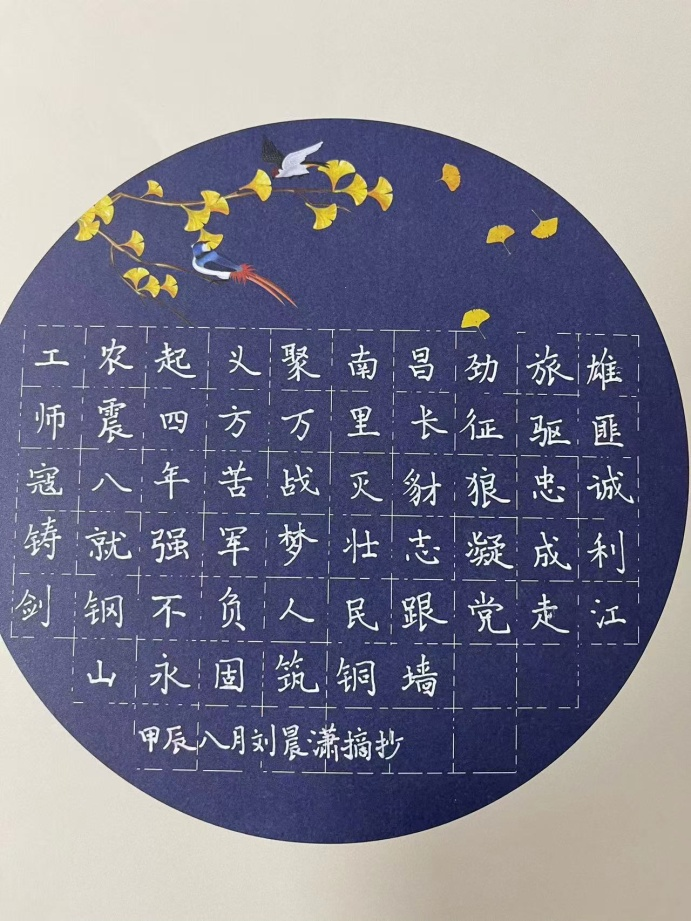 工农起义聚南昌劲旅雄
师震四方万里长征驱匪
寇八年苦战灭豺狼忠诚
铸就强军梦壮志凝成利
剑钢不负人民跟党走江
山永固筑铜墙
甲辰八月刘晨潇摘抄